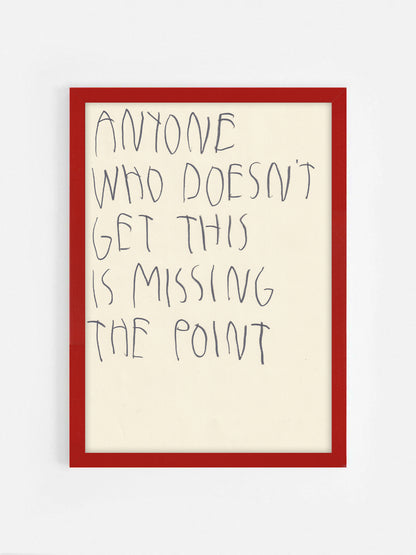 ANYONE
WHO DOESN'T
GET THIS
IS MISSING
THE POINT